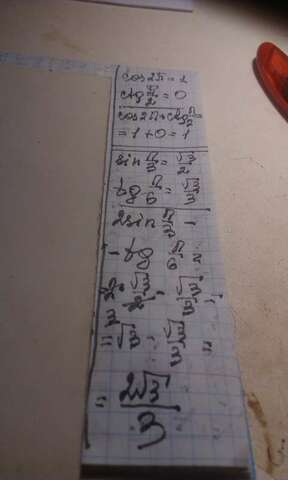 cos2π = 1
ctg π/2 = 0
cos2π + ctg π/2 =
= 1 + 0 = 1
sin π/3 = √3/2
tg π/6 = √3/3
2sin π/3 -
- tg π/6 =
2 · √3/2 - √3/3 =
= √3 - √3/3 =
= 2√3/3